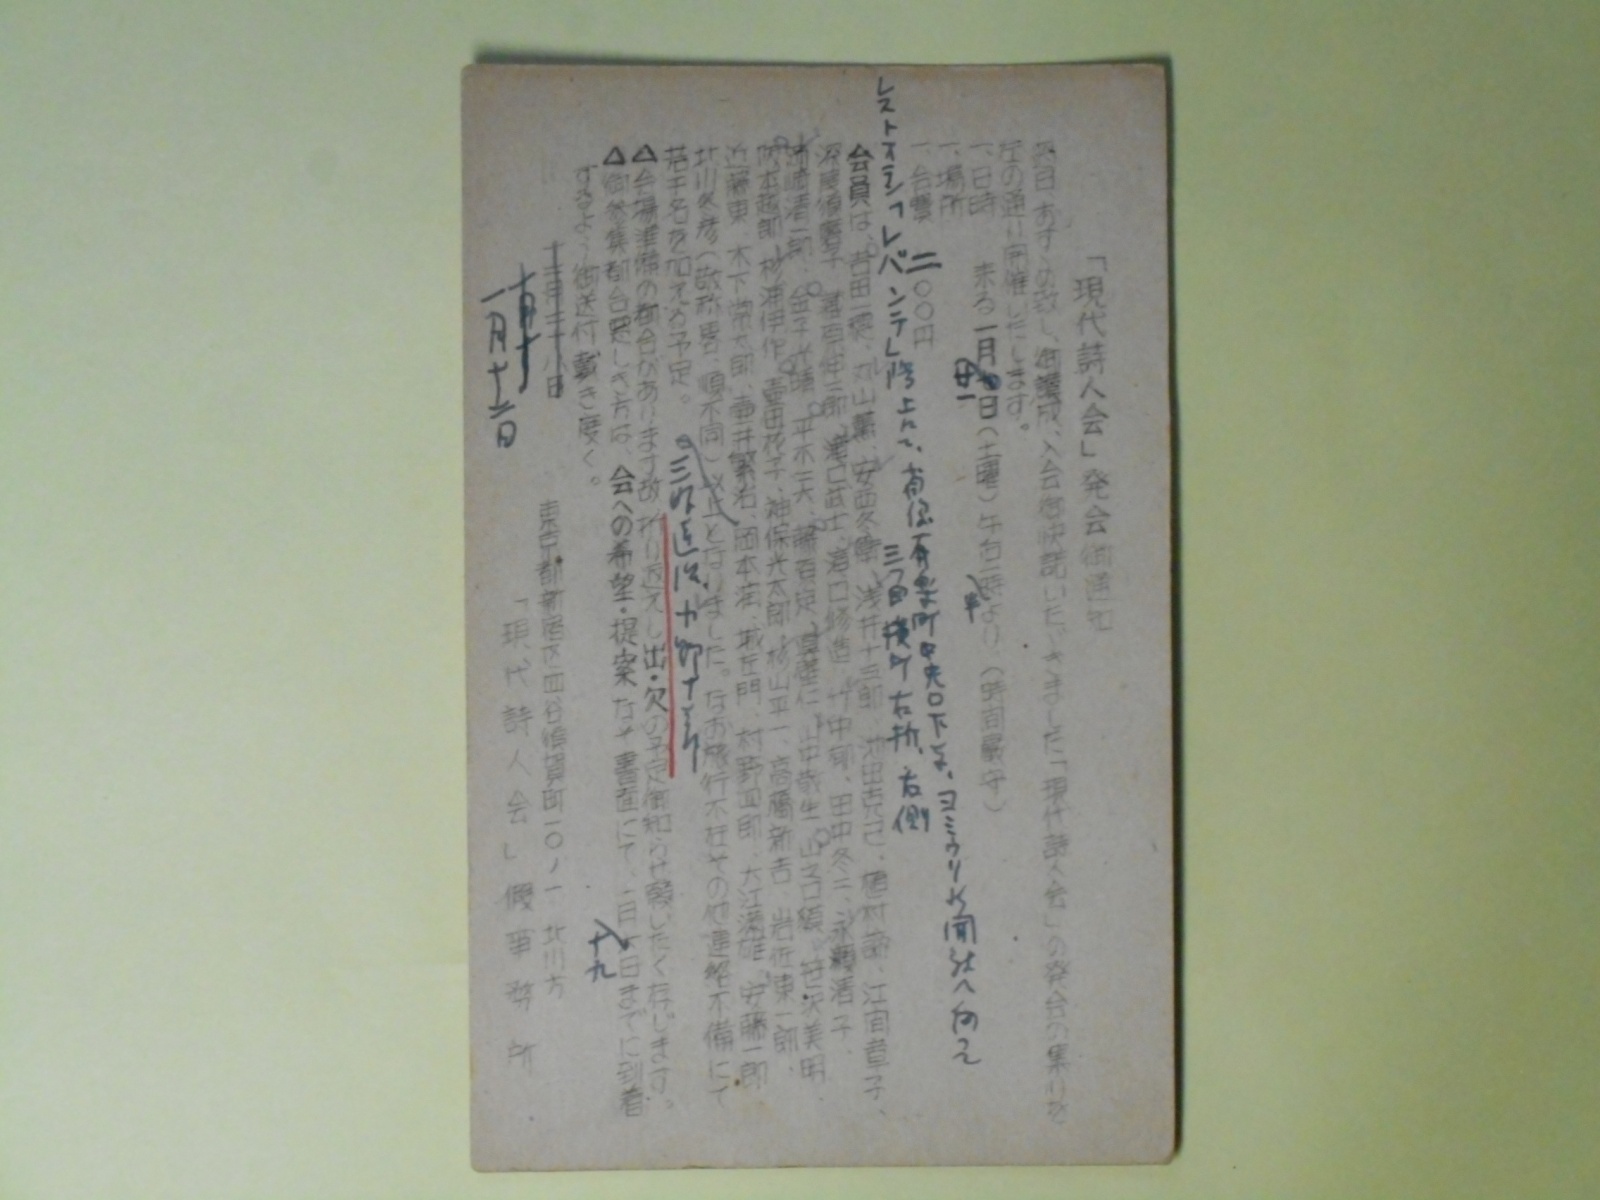 「現代詩人会」発会御通知
左の通り開催いたします。
一、日時 来る一月廿一日(土曜)午右一時半より(時間厳守)
一、場所
レストラン「レバンテ」階上にて、省線有楽町中央口下车、ヨミウリ新聞社へ向って
三つ目横町右折、右側
一、会費 二〇〇円
会員は、吉田一穂、丸山薫、安西冬衛、浅井十三郎、池田克己、植村諦、江間章子、
深尾須磨子、蔵原伸二郎、瀧口武士、瀧口修造、竹中郁、田中冬二、永瀬清子、
岡崎清一郎、金子光晴、平木二六、藤原定、真壁仁、山中散生、山之口貘、笹沢美明、
阪本越郎、杉浦伊作、壷田花子、神保光太郎、杉山平一、高橋新吉、岩佐東一郎、
近藤東、木下常太郎、壷井繁治、岡本潤、城左門、村野四郎、大江満雄、安藤一郎
北川冬彦(敬称畧、順不同)以上となりました。なお旅行不在その他連絡不備にて
若干名を加える予定。
△会場準備の都合があります故折り返えし出・欠の予定御知らせ願いたく存じます。
△御参集都合悪しき方は、会への希望・提案など書面にて、一月十九日までに到着
するよう御送付戴き度く。
一月十二日
東京都新宿区四谷須賀町一〇ノ一 北川方
「現代詩人会」假事務所